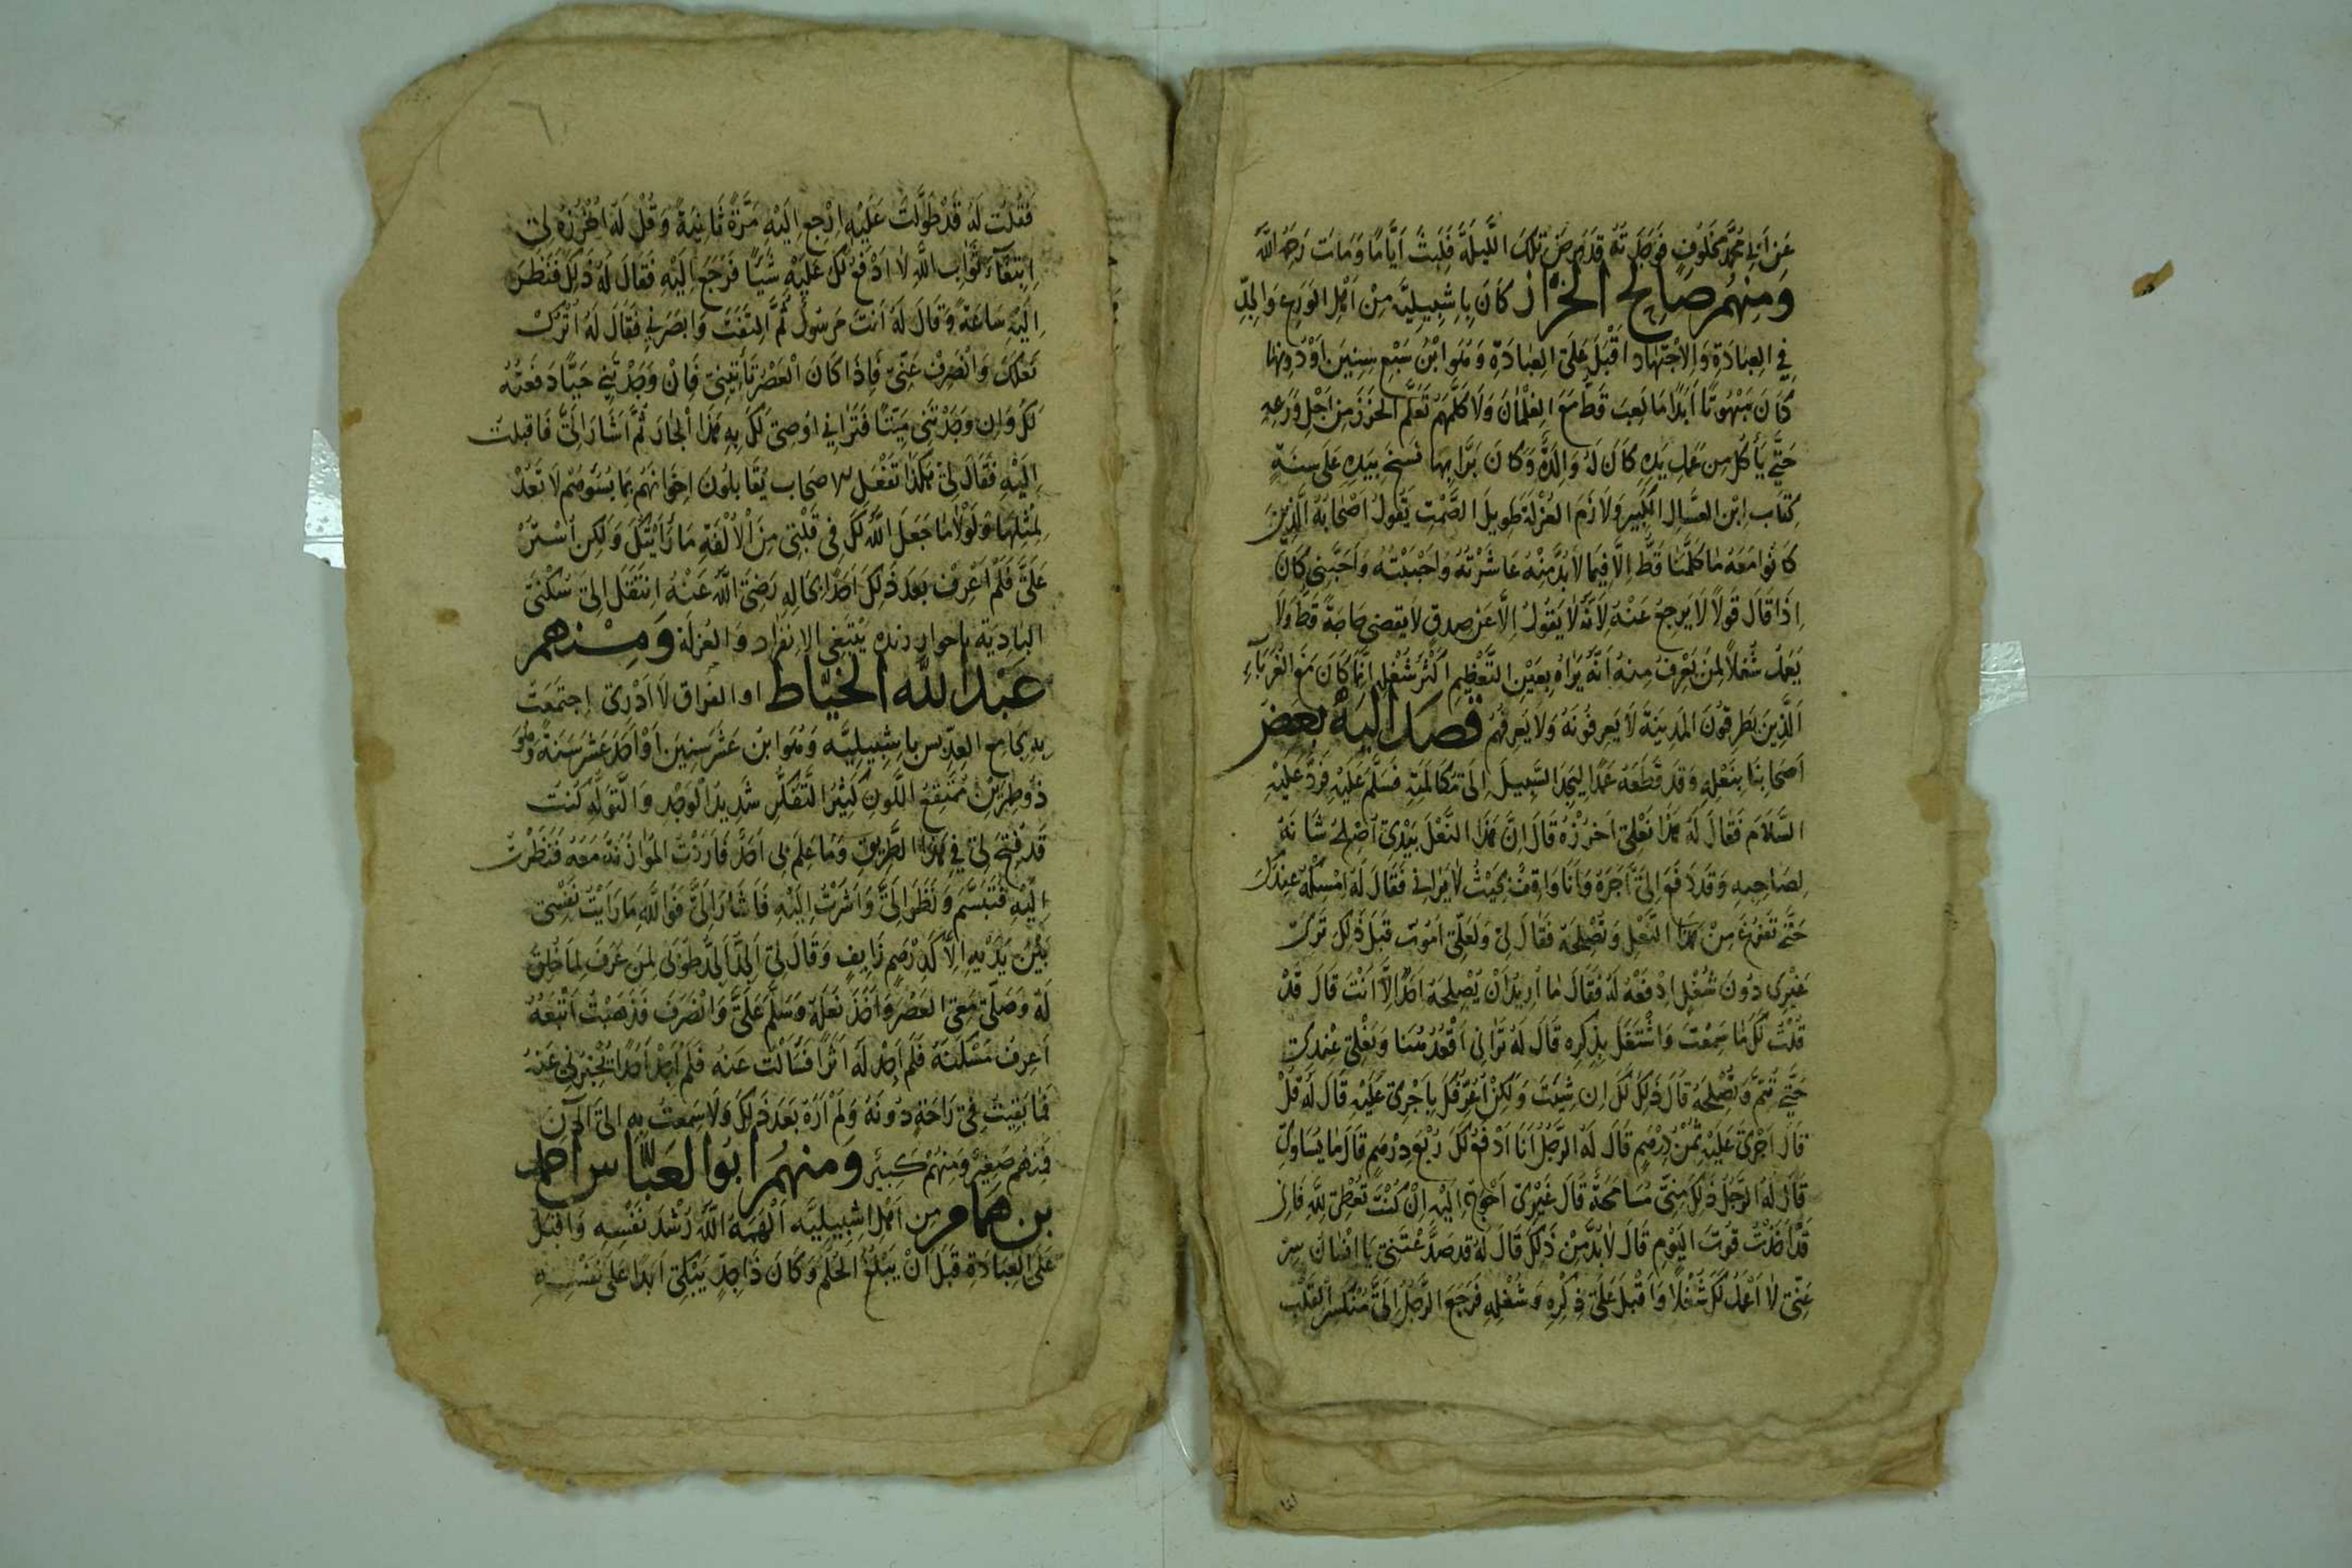 عَنْ اَبِي مُحَمَّدٍ مَخْلُوفٍ فَوَجَدْتُهُ قَدْ مَرِضَ تِلْكَ اللَّيلَةَ فَلَبِثَ اَيَّامًا وَمَاتَ رَحِمَهُ اللَّهُ
وَمِنهُم صَالِح الخَرَّاز كَانَ بِاِشْبِيلِيَّه مِنْ اَهْلِ الوَرَعِ وَالجِدِّ
فِي العِبَادَةِ وَالاجْتِهَاد اَقْبَلَ عَلَى العِبَادَةِ وَهُوَ ابْنُ سَبْعِ سِنِينَ اَوْ دُونهَا
كَانَ مَبْهُوتًا اَبَدًا مَا لَعِبَ قَطُّ مَعَ الغِلْمَانِ وَلَا كَلَّمَهُمْ تَعَلَّمَ الخَرْزَ مِنْ اَجْلِ وَرَعِهِ
حَتَّى يَأكُلَ مِن عَمَلِ يَدِهِ كَانَ لَهُ وَالِدَةٌ وَكَانَ بَرًّا بِهَا نَسَخَ بِيَدِهِ عَلَى سِنِهِ
كِتَابَ اِبْنِ العَسَّالِ الكَبِيرِ وَلَازَمَ العُزْلَةَ طَوِيلَ الصَّمْتِ يَقُولُ اَصْحَابُهُ الَّذِينَ
كَانُوا مَعَهُ مَا كَلَّمَنَا قَطُّ اِلَّا فِيمَا لَابُدَّ مِنْهُ عَاشَرْتُهُ وَاَحْبَبْتُهُ وَاَحَبَّنِي كَانَ
اِذَا قَالَ قَولًا لَا يَرجِعُ عَنْهُ لِاَنَّهُ لَا يَقُولُ اِلَّا عَن صِدقٍ لَا يَقضِي حَاجَةً قَطُّ وَلَا
يَعْمَلُ شُغلًا لِمَنْ يَعْرِفُ مِنهُ اَنَّهُ يَرَاهُ بِعَيْنِ التَّعْظِيمِ اَكْثَرُ شُغْلِهِ اِنَّمَا كَانَ مَعَ الغُرَبَآءِ
اَلَّذِينَ يَطرِقُونَ المَدِينَةَ لَا يَعرِفُونَهُ وَلَا يَعرِفُهُمْ قَصَدَ اِلَيهِ بَعضُ
اَصحَابِنَا بِنَعْلِهِ وَقَد قَطَعَهُ عَمْدًا لِيَجِدَ السَّبِيلَ اِلَى مُكَالَمَتِهِ فَسَلَّمَ عَلَيْهِ فَرَدَّ عَلَيْهِ
السَّلَامَ فَقَالَ لَهُ هَذَا نَعْلِي اَخْرُزْهُ قَالَ اِنَّ هَذَا النَّعْلَ بِيَدِي اُصْلِحُ شَانَهُ
لِصَاحِبِهِ وَقَدْ دَفَعَ اِلَيَّ اَجْرَهُ وَاَنَا وَاقِفٌ بِحَيْثُ لَا يَرَانِي فَقَالَ لَهُ اَمْسِكْهُ عِنْدَكَ
حَتَّى تَفْرُغَ مِنْ هَذَا النَّعْلِ وَتُصْلِحَهُ فَقَالَ لِي وَلَعَلِّي اَمُوتُ قَبلَ ذَلِكَ تَرَى
غَيْرِي دُونَ شُغْلٍ اِدْفَعْهُ لَهُ فَقَالَ مَا اُرِيدُ اَنْ يُصْلِحَهُ اَحَدٌ اِلَّا اَنْتَ قَالَ قَدْ
قُلْتُ لَكَ مَا سَمِعْتَ وَاشْتَغَلَ بِذِكْرِهِ قَالَ لَهُ تَرَانِي اَقْعُدُ هُهنَا وَنَعْلِي عِنْدِي
حَتَّى تُتِمَّ وَتُصْلِحَهُ قَالَ ذَلِكَ لَكَ اِن شِئتَ وَلَكِنْ اُعَرِّفُكَ بِاَجْرِي عَلَيْهِ قَالَ لَهُ قُلْ
قَالَ اَجْرِي عَلَيْهِ ثُمُنُ دِرْهَمٍ قَالَ لَهُ الرَّجُلُ اَنَا اَدْفَعُ لَكَ رُبْعَ دِرْهَمٍ قَالَ مَا يُسَاوِي
قَالَ لَهُ الرَّجُلُ ذَلِكَ مِنِّي مُسَامَحَةً قَالَ غَيْرِي اَحْوَجُ اِلَيْهِ اِنْ كُنْتَ تُعْطِي لِلَّهِ فَاِنِّي
قَدْ اَخَذْتُ قُوتَ اليَوْمِ قَالَ لَابُدَّ مِنْ ذَلِكَ قَالَ لَهُ قَد صَدَّعْتَنِي يَا اِنْسَانُ سِرْ
عَنِّي لَا اَعْمَلُ لَكَ شُغْلًا وَاَقْبَلَ عَلَى ذِكْرِهِ وَشُغْلِهِ فَرَجَعَ الرَّجُلُ اِلَيَّ مُنْكَسِرَ القَلْبِ
فَقُلتُ لَهُ قَدْ طَوَّلتَ عَلَيْهِ اِرْجِعِ اِلَيْهِ مَرَّةً ثَانِيَةً وَقُلْ لَهُ اَخْرُزْهُ لِي
اِبتِغَآءَ ثَوَابِ اللَّهِ لَا اَدْفَعُ لَكَ عَلَيْهِ شَيْئًا فَرَجَعَ اِلَيْهِ فَقَالَ لَهُ ذَلِكَ فَنَظَرَ
اِلَيْهِ سَاعَةً وَقَالَ لَهُ اَنتَ مَرسُولٌ ثُمَّ التَفَتَ وَابْصَرَنِي فَقَالَ لَهُ اتْرُكْ
نَعْلَكَ وَانْصَرِفْ عَنِّي فَاِذَا كَانَ العَصْرُ تَأتِينِي فَاِنْ وَجَدْتَنِي حَيًّا دَفَعتُهُ
لَكَ وَاِن وَجَدْتَنِي مَيّتًا فَتَرَانِي اُوصِي لَكَ بِهِ هَذَا الجَارَ ثُمَّ اَشَارَ اِلَيَّ فَاقبلتُ
اِلَيْهِ فَقَالَ لِي هَكَذَا تَفْعَلُ الاصحَاب يُقَابِلُونَ اِخوَانَهُم بِمَا يَسُوءهُم لَا تَعُدْ
لِمِثْلِهَا وَلَوْلَا مَا جَعَلَ اللَّهُ لَكَ فِي قَلْبِي مِنَ الْاُلْفَةِ مَا رَاَيْتُكَ وَلَكِن اَسْتُرْ
عَلَيَّ فَلَمْ اُعْرِفْ بَعدَ ذَلِكَ اَحَدًا بِحَالِهِ رَضِيَ اللَّهُ عَنْهُ اِنتَقَلَ اِلَى سُكْنَى
البَادِيَةِ باحواز رنده يَبْتَغِي الاِنفِرَاد وَالعُزلَة وَمِنهُم
عَبدُ اللَّه الخَيَّاط او القراق لَا اَدْرِي اِجتَمَعتُ
بِهِ بِجَامِعِ العديس بِاِشْبِيلِيَّه وَهُوَ ابنُ عَشْرِ سِنِينَ اَوْ اَحَدَ عَشْرَ سَنَةً وَهُوَ
ذُو طِمْرَيْنِ مُمْتَقَعُ اللَّونِ كَثِيرُ التَّفَكُّرِ شَدِيدُ الوَجْدِ وَالتَّوَلُّهِ كُنتُ
قَد فُتِحَ لِي فِي هَذَا الطَّرِيقِ وَمَا عَلِمَ بِي اَحَدٌ فَاَرَدْتُ المُوَازَنَةَ مَعَهُ فَنَظَرْتُ
اِلَيْهِ فَتَبَسَّمَ وَنَظَرَ اِلَيَّ وَاَشَرْتُ اِلَيْهِ فَاَشَارَ اِلَيَّ فَوَاللَّهِ مَا رَاَيْتُ نَفْسِي
بَيْنَ يَدَيْهِ اِلَّا كَدِرْهَمٍ زَايِفٍ وَقَالَ لِي اَلجِدَّ الجِدَّ طُوبَى لِمَن عَرَفَ لِمَا خُلِقَ
لَهُ وَصَلَّى مَعِي العَصْرَ وَاَخَذَ نَعْلَهُ وَسَلَّمَ عَلَيَّ وَانْصَرَفَ فَذَهَبْتُ اَتْبَعُهُ
اَعرِفُ مَسْكَنَهُ فَلَم اَجِدْ لَهُ اَثَرًا فَسَاَلْتُ عَنهُ فَلَم اَجِدْ اَحَدًا يُخْبِرُنِي عَنهُ
فَمَا بَقِيتُ فِي رَاحَةٍ دُونَهُ وَلَمْ اَرَهُ بَعدَ ذَلِكَ وَلَا سَمِعتُ بِهِ اِلَى الآنَ
فَمِنهُم صَغِيرٌ وَمِنهُم كَبِيرٌ وَمِنهُم ابُو العَبَّاس احمد
بن همام مِن اَهْلِ اِشبِيلِيَّه اَلهَمَهُ اللَّهُ رُشدَ نَفسِهِ وَاَقبَلَ
عَلَى العِبَادَةِ قَبلَ اَنْ يَبْلُغَ الحُلمَ وَكَانَ ذَا جِدٍّ يَبْكِي اَبَدًا عَلَى نَفسِهِ
انا